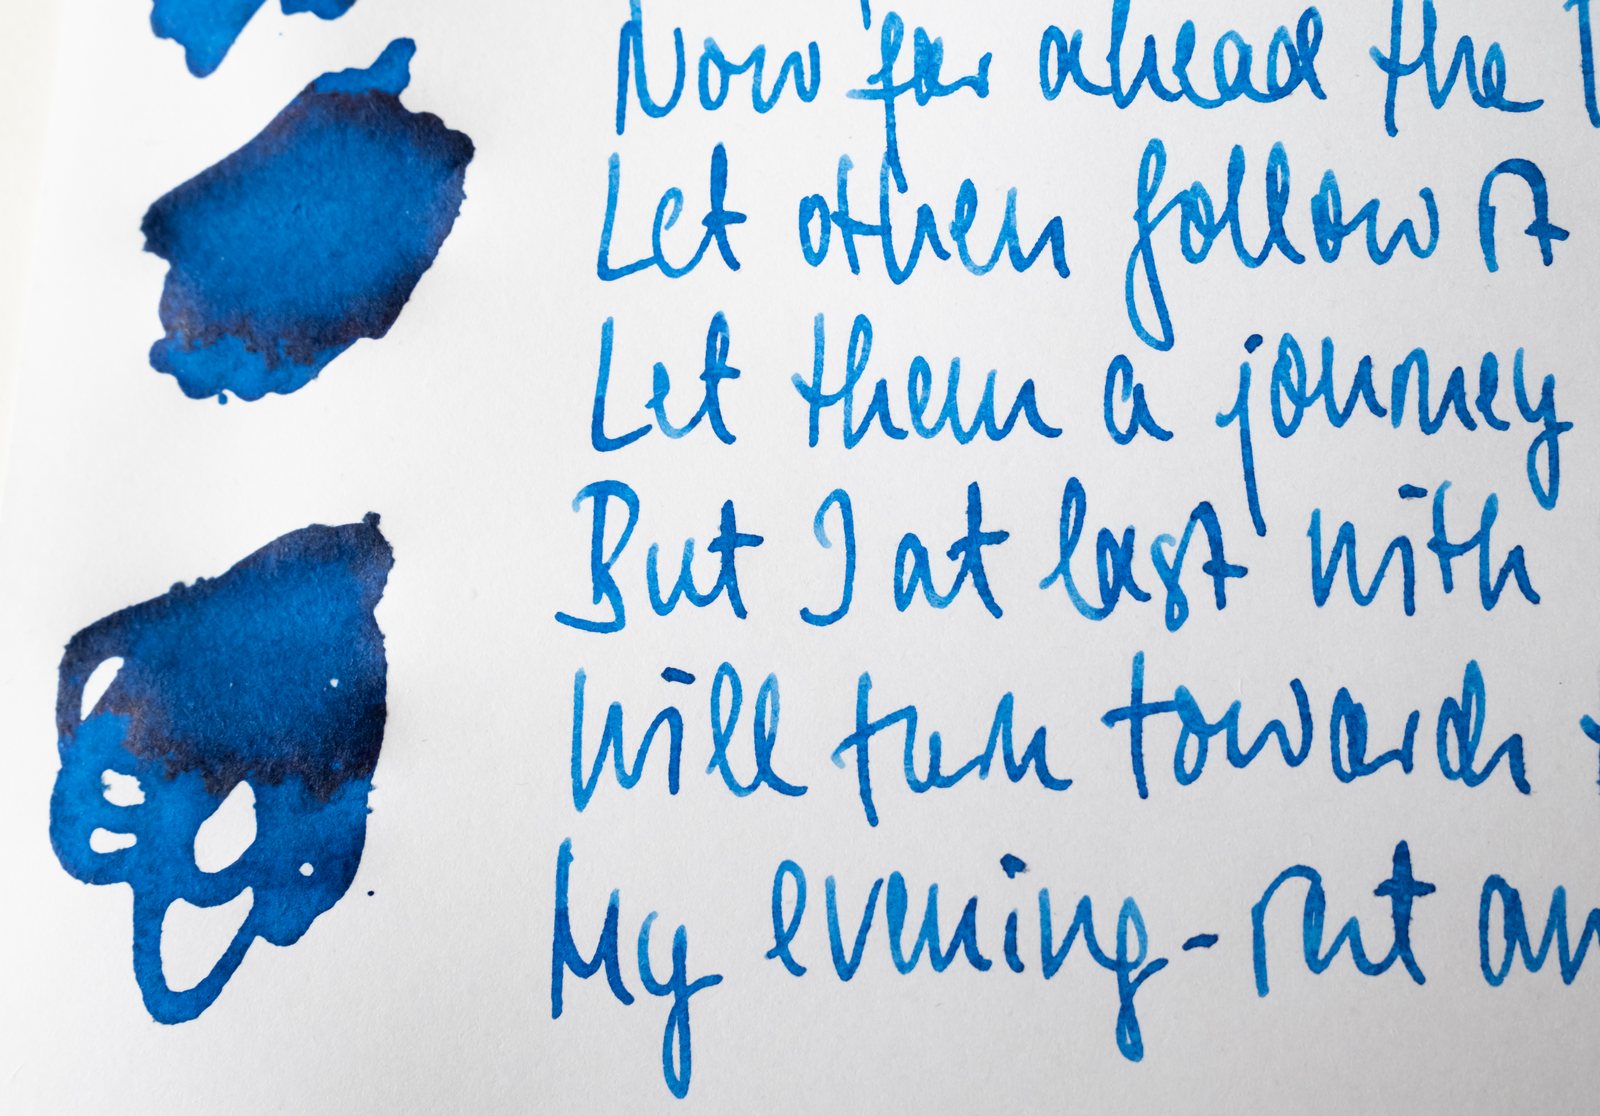 Now far ahead the
Let others follow it
Let them a journey
But I at last with
Will turn towards
My evening-rest an